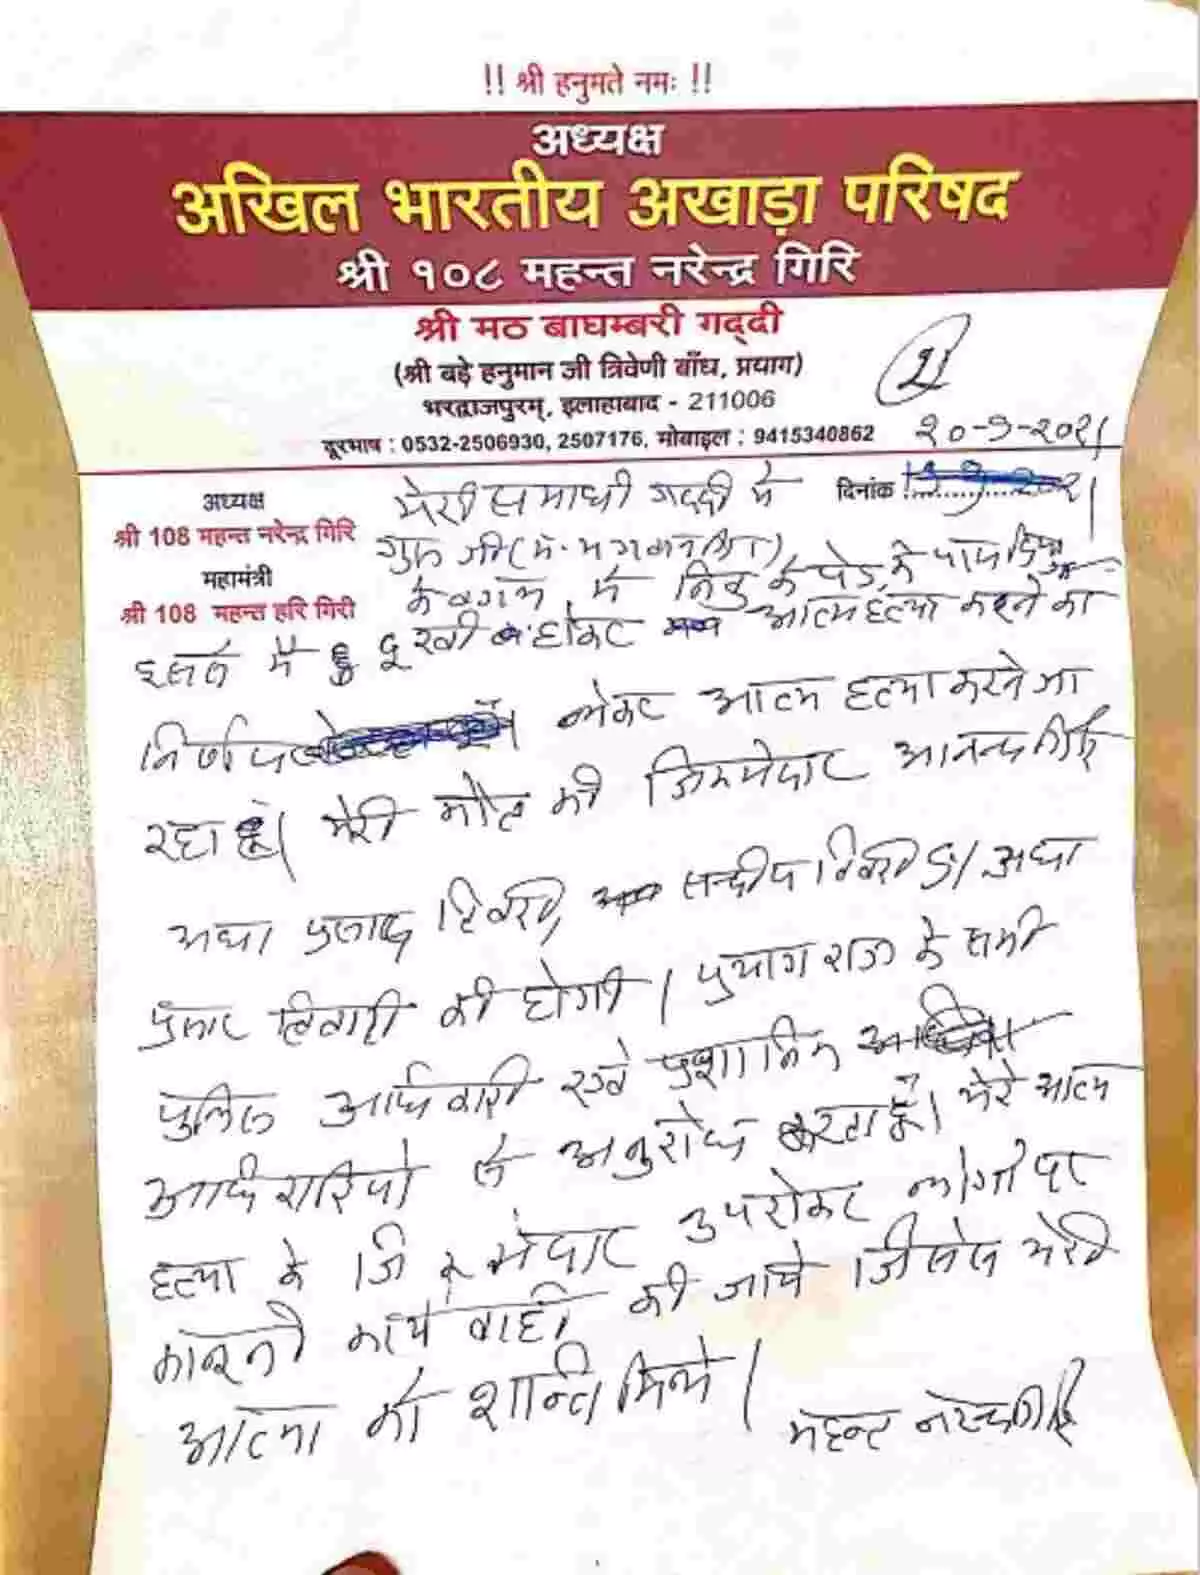 !! श्री हनुमते नमः !!
अध्यक्ष
अखिल भारतीय अखाड़ा परिषद
श्री १०८ महन्त नरेन्द्र गिरि
श्री मठ बाघम्बरी गद्दी
(श्री बड़े हनुमान जी त्रिवेणी बाँध, प्रयाग)
भरद्वाजपुरम्, इलाहाबाद - 211006
दूरभाष : 0532-2506930, 2507176, मोबाइल : 9415340862
२०-९-२०२१
दिनांक
अध्यक्ष
श्री 108 महन्त नरेन्द्र गिरि
महामंत्री
श्री 108 महन्त हरि गिरी
मेरी समाधी गद्दी मे
गुरू जी
के बगल में निबु के पेड़ के पास
मै दूखी होकर आत्महत्या करने का
निर्णय लेकर आत्म हत्या करने जा
रहा हूँ। मेरी मौत की जिम्मेदार आनन्द गिरि
अधा प्रसाद तिवारी सन्दीप तिवारी अधा
प्रसाद तिवारी की होगी। प्रयाग राज के सभी
पुलिस अधिकारी एवं प्रशासनिक
अधिकारियो से अनुरोध करता हूँ। मेरे आत्म
हत्या के जिम्मेदार उपरोक्त लोगो पर
कानूनी कार्य वाही की जाये जिससे मेरी
आत्मा को शान्ति मिले।
महन्त नरेन्द्र गिरि